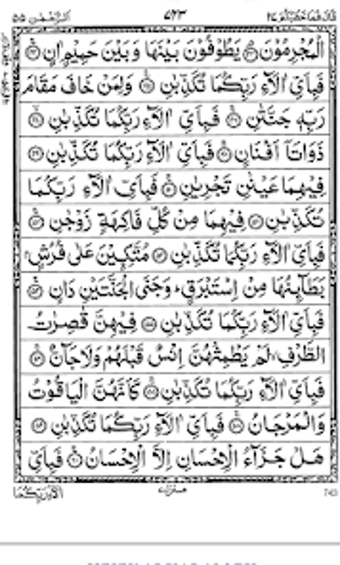 قَالَ فَمَا خَطْبُكُمْ ٢٧ ٧٤٣ اَلرَّحْمٰن ٥٥
الْمُجْرِمُوْنَ ۝ يَطُوْفُوْنَ بَيْنَهَا وَبَيْنَ حَمِيْمٍ اٰنٍ ۝
فَبِاَيِّ اٰلَآءِ رَبِّكُمَا تُكَذِّبٰنِ ۝ وَلِمَنْ خَافَ مَقَامَ
رَبِّهٖ جَنَّتٰنِ ۝ فَبِاَيِّ اٰلَآءِ رَبِّكُمَا تُكَذِّبٰنِ ۝
ذَوَاتَآ اَفْنَانٍ ۝ فَبِاَيِّ اٰلَآءِ رَبِّكُمَا تُكَذِّبٰنِ ۝
فِيْهِمَا عَيْنٰنِ تَجْرِيٰنِ ۝ فَبِاَيِّ اٰلَآءِ رَبِّكُمَا
تُكَذِّبٰنِ ۝ فِيْهِمَا مِنْ كُلِّ فَاكِهَةٍ زَوْجٰنِ ۝
فَبِاَيِّ اٰلَآءِ رَبِّكُمَا تُكَذِّبٰنِ ۝ مُتَّكِـِٕيْنَ عَلٰى فُرُشٍۭ
بَطَآىِٕنُهَا مِنْ اِسْتَبْرَقٍ ؕ وَجَنَا الْجَنَّتَيْنِ دَانٍ ۝
فَبِاَيِّ اٰلَآءِ رَبِّكُمَا تُكَذِّبٰنِ ۝ فِيْهِنَّ قٰصِرٰتُ
الطَّرْفِ ۙ لَمْ يَطْمِثْهُنَّ اِنْسٌ قَبْلَهُمْ وَلَا جَآنٌّ ۝
فَبِاَيِّ اٰلَآءِ رَبِّكُمَا تُكَذِّبٰنِ ۝ كَاَنَّهُنَّ الْيَاقُوْتُ
وَالْمَرْجَانُ ۝ فَبِاَيِّ اٰلَآءِ رَبِّكُمَا تُكَذِّبٰنِ ۝
هَلْ جَزَآءُ الْاِحْسَانِ اِلَّا الْاِحْسَانُ ۝ فَبِاَيِّ